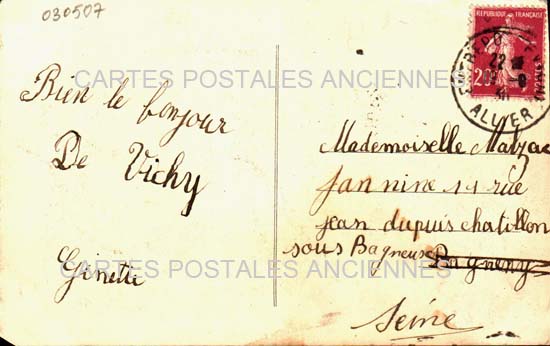 030507
REPUBLIQUE FRANÇAISE
20c
ALLIER
CARTES POSTALES ANCIENNES
Bien le bonjour
De Vichy
Ginette
Mademoiselle Malzac
Jannine 11 rue
jean dupuis chatillon
sous Bagneuse
Seine
CARTES POSTALES ANCIENNES